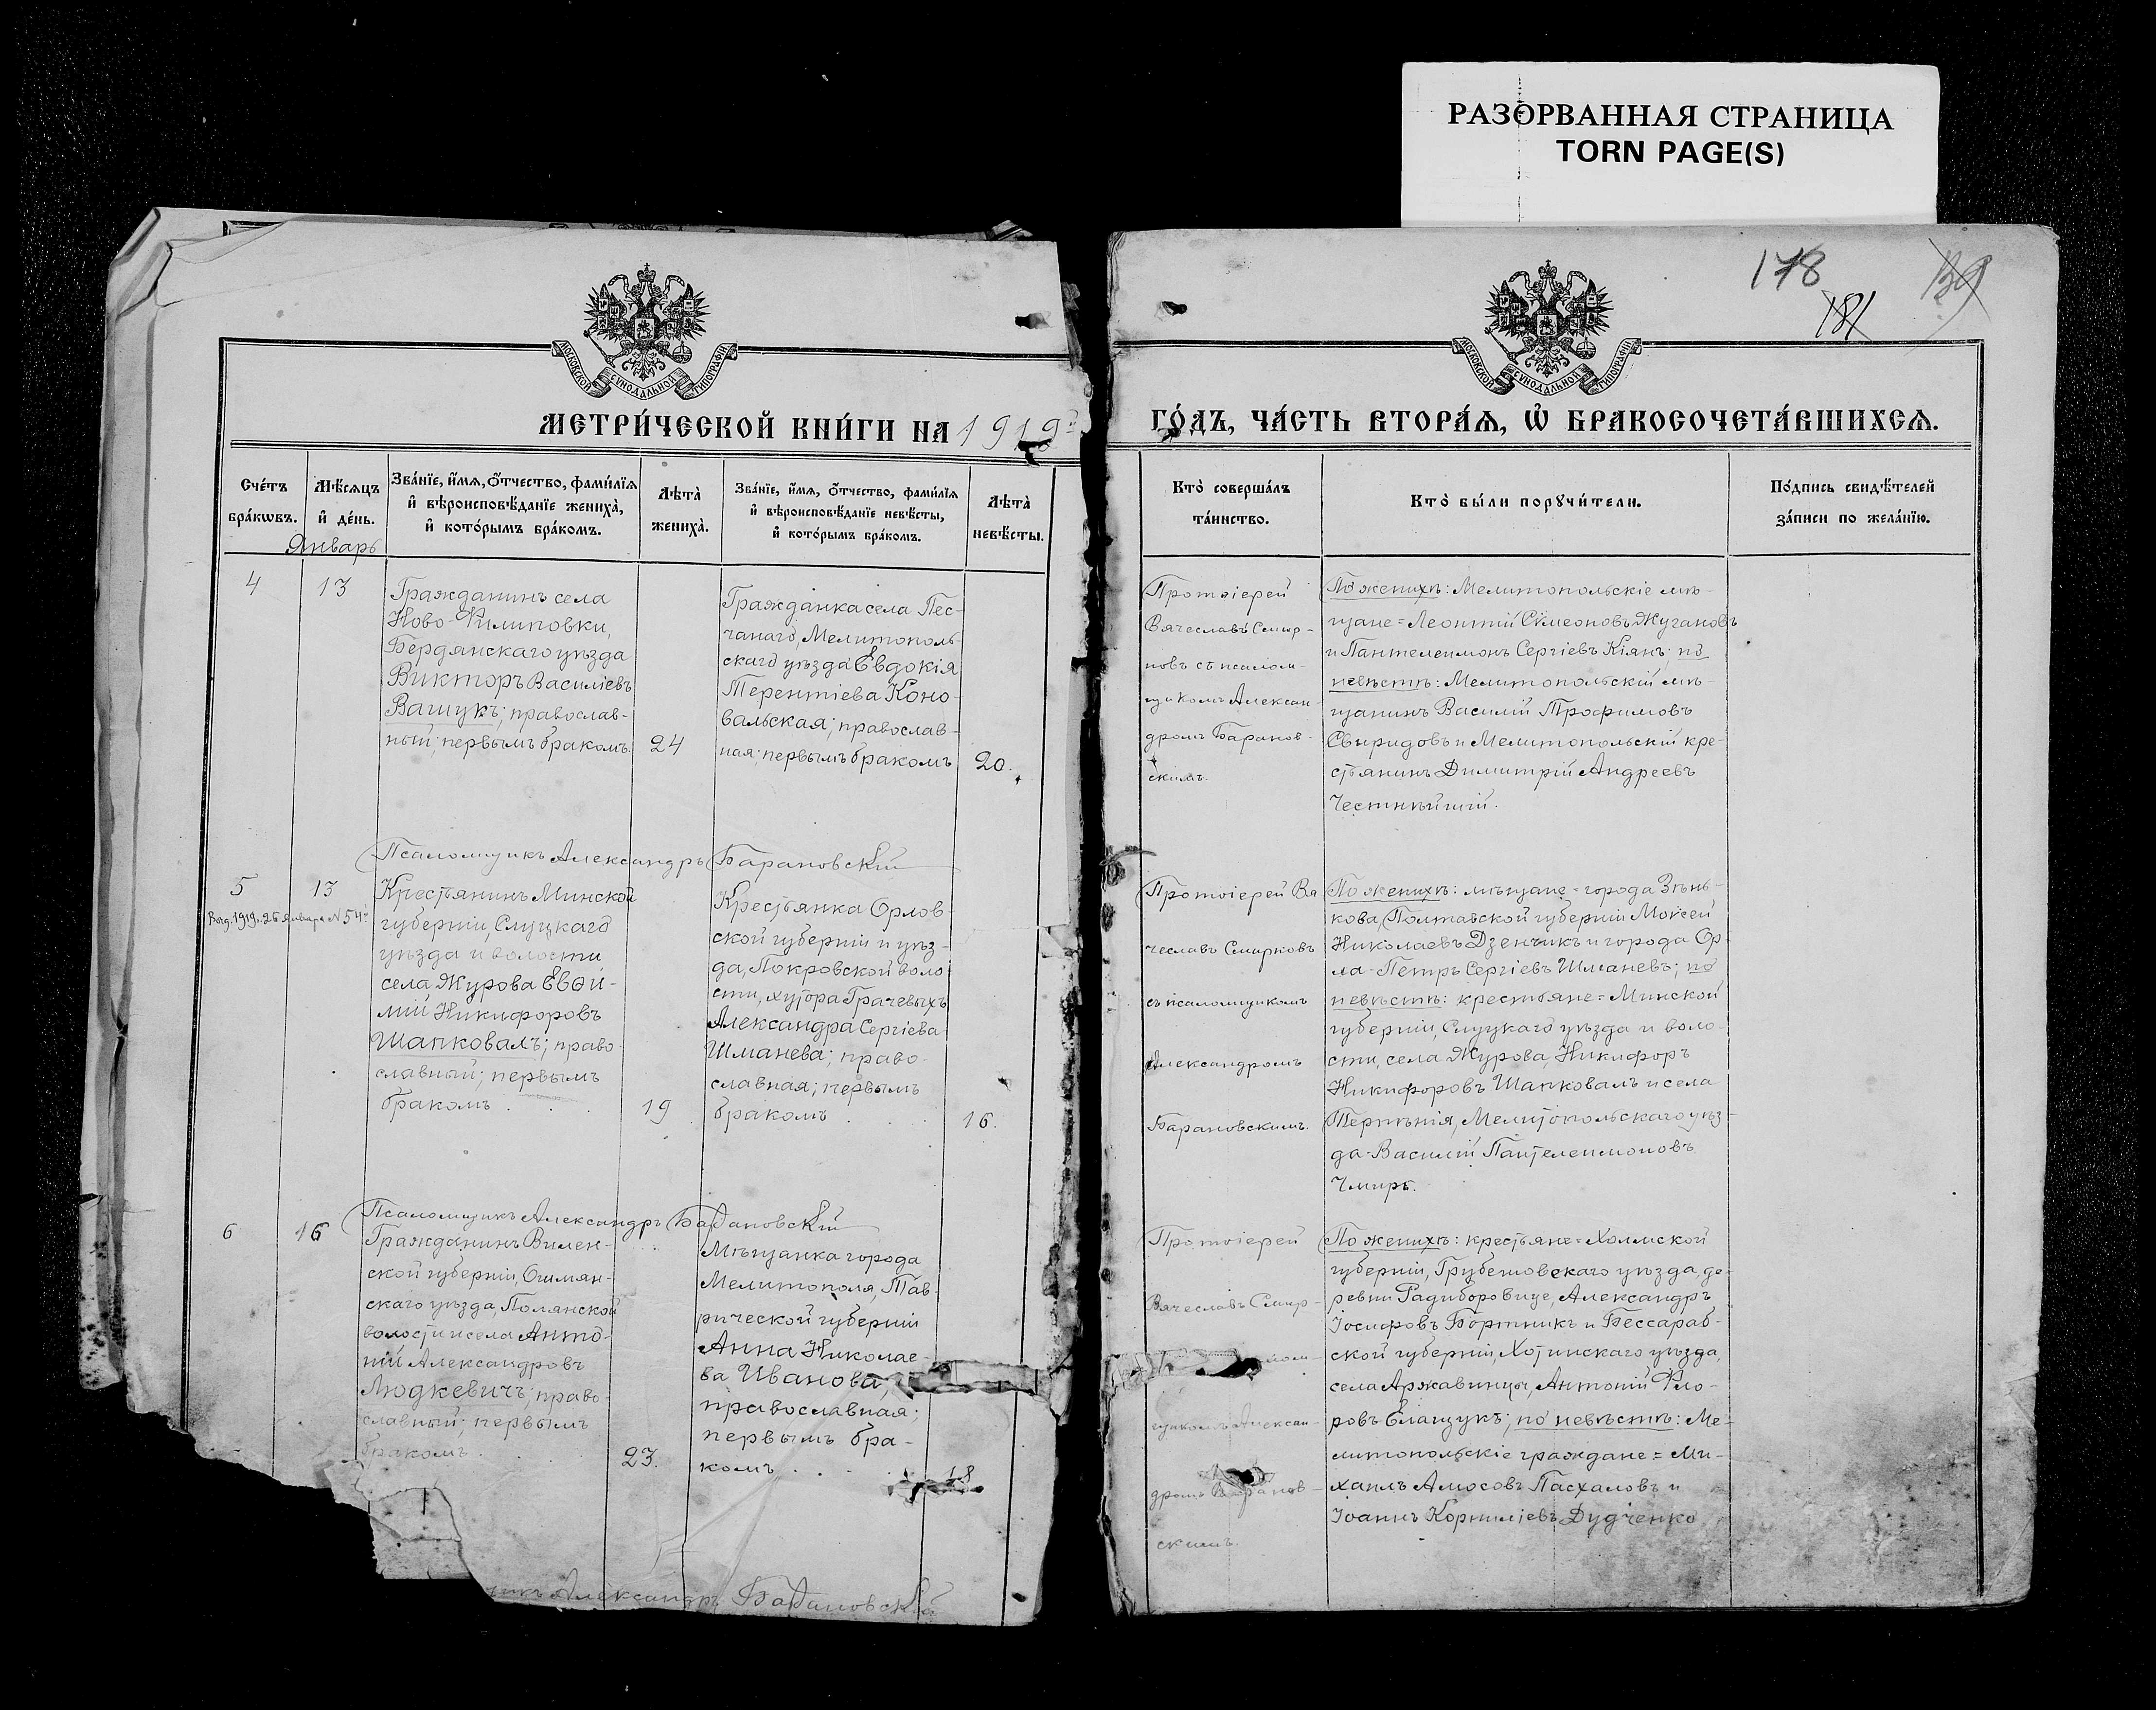 РАЗОРВАННАЯ СТРАНИЦА
TORN PAGE(S)
178
181
139
МОСКОВСКОЙ СУНОДАЛЬНОЙ ТИПОГРАФІИ
МОСКОВСКОЙ СУНОДАЛЬНОЙ ТИПОГРАФІИ
МЕТРИ́ЧЕСКОЙ КНИ́ГИ НА 1919
ГО́ДЪ, ЧА́СТЬ ВТОРА́Ѧ, Ѽ БРАКОСОЧЕТА́ВШИХСѦ.
Сче́тъ
бра́кѡвъ.
Мѣ́сѧцъ
и҆ де́нь.
Январь
Зва́нїе, и҆́мѧ, ѻ҆́тчество, фами́лїѧ
и҆ вѣроисповѣ́данїе женихà,
и҆ кото́рымъ бра́комъ.
Лѣтà
женихà.
Зва́нїе, и҆́мѧ, ѻ҆́тчество, фами́лїѧ
и҆ вѣроисповѣ́данїе невѣ́сты,
и҆ кото́рымъ бра́комъ.
Лѣтà
невѣ́сты.
Кто̀ соверша́лъ
та́инство.
Кто̀ бы́ли порꙋчи́тели.
По́дпись свидѣ́телей
за́писи по жела́нїю.
4
13
Гражданинъ села
Ново-Филиповки,
Бердянскаго уѣзда
Викторъ Василіевъ
Ващукъ; православ-
ный; первымъ бракомъ.
24
Гражданка села Пес-
чанаго, Мелитополь
скаго уѣзда Евдокія
Терентіева Коно-
вальская; православ-
ная; первымъ бракомъ
20.
Протоіерей
Вячеславъ Смир-
новъ съ псалом-
щикомъ Алексан-
дромъ Баранов-
скимъ.
По женихѣ: Мелитопольскіе мѣ-
щане = Леонтій Сѵмеоновъ Жугановъ
и Пантелеимонъ Сергіевъ Кіянъ; по
невѣстѣ: Мелитопольскій мѣ-
щанинъ Василій Трофимовъ
Свиридовъ и Мелитопольскій кре-
стьянинъ Димитрій Андреевъ
Честнѣйшій.
Псаломщикъ Александръ Барановскій
5
13
Выд. 1919 г. 26 Января № 54
Крестьянинъ Минской
губерніи, Слуцкаго
уѣзда и волости
села Журова Евѳи-
мій Никифоровъ
Шапковалъ; право-
славный; первымъ
бракомъ . . .
19
Крестьянка Орлов-
ской губерніи и уѣз-
да, Покровской воло
сти, хутора Грачевыхъ
Александра Сергіева
Шманева; право-
славная; первымъ
бракомъ . . .
16.
Протоіерей Вя
чеславъ Смирновъ
съ псаломщикомъ
Александромъ
Барановскимъ.
По женихѣ: мѣщане = города Зѣнь-
кова, Полтавской губерніи Моѵсей
Николаевъ Дзенчикъ и города Ор-
ла - Петръ Сергіевъ Шманевъ; по
невѣстѣ: крестьяне = Минской
губерніи, Слуцкаго уѣзда и воло-
сти, села Журова, Никифоръ
Никифоровъ Шапковалъ и села
Терпѣнія, Мелитопольскаго уѣз-
да - Василій Пантелеимоновъ
Чмирь.
Псаломщикъ Александръ Барановскій
6
16
Гражданинъ Вилен-
ской губерніи, Ошмян-
скаго уѣзда, Полянской
волости и села Анто-
ній Александровъ
Людкевичъ; право-
славный; первымъ
бракомъ . . .
23.
Мѣщанка города
Мелитополя, Тав-
рической губерніи
Анна Николае-
ва Иванова;
православная;
первымъ бра-
комъ . . .
18
Протоіерей
Вячеславъ Смир-
лом-
щикомъ Алексан-
дромъ Баранов-
скимъ.
По женихѣ: крестьяне = Холмской
губерніи, Грубешовскаго уѣзда, де-
ревни Радиборовице, Александръ
Іосифовъ Бортникъ и Бессараб-
ской губерніи, Хотинскаго уѣзда,
села Аржавинцы, Антоній Фло-
ровъ Елащукъ; по невѣстѣ: Ме-
литопольскіе граждане = Ми-
хаилъ Амосовъ Пасхаловъ и
Іоаннъ Корниліевъ Дудченко
икъ Александръ Барановскій